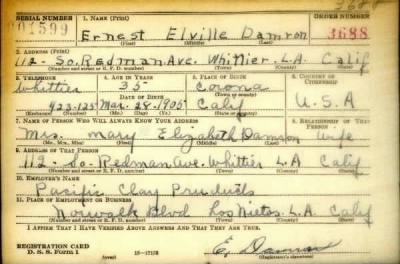 SERIAL NUMBER 1. NAME (Print) ORDER NUMBER
Ernest Elville Damron 3688
(First) (Middle) (Last)
2. ADDRESS (Print)
112 - So. Redman Ave. Whittier. L.A. Calif
(Number and street or R. F. D. number) (Town) (County) (State)
3. TELEPHONE 4. AGE IN YEARS 5. PLACE OF BIRTH 6. COUNTRY OF CITIZENSHIP
Whittier 35 Corona
DATE OF BIRTH (Town or county)
423-125 Mar. 28-1905 Calif U.S.A
7. NAME OF PERSON WHO WILL ALWAYS KNOW YOUR ADDRESS 8. RELATIONSHIP OF THAT PERSON
Mrs. Mary Elizabeth Damron Wife
(Mr., Mrs., Miss) (First) (Middle) (Last)
9. ADDRESS OF THAT PERSON
112 - So- Redman Ave. Whittier L.A Calif
(Number and street or R. F. D. number) (Town) (County) (State)
10. EMPLOYER'S NAME
Pacific Clay Products
11. PLACE OF EMPLOYMENT OR BUSINESS
Norwalk Blvd Los Nietos. L.A. Calif
(Number and street or R. F. D. number) (Town) (County) (State)
I AFFIRM THAT I HAVE VERIFIED ABOVE ANSWERS AND THAT THEY ARE TRUE.
REGISTRATION CARD
D. S. S. FORM 1 E. Damron
(Registrant's signature)